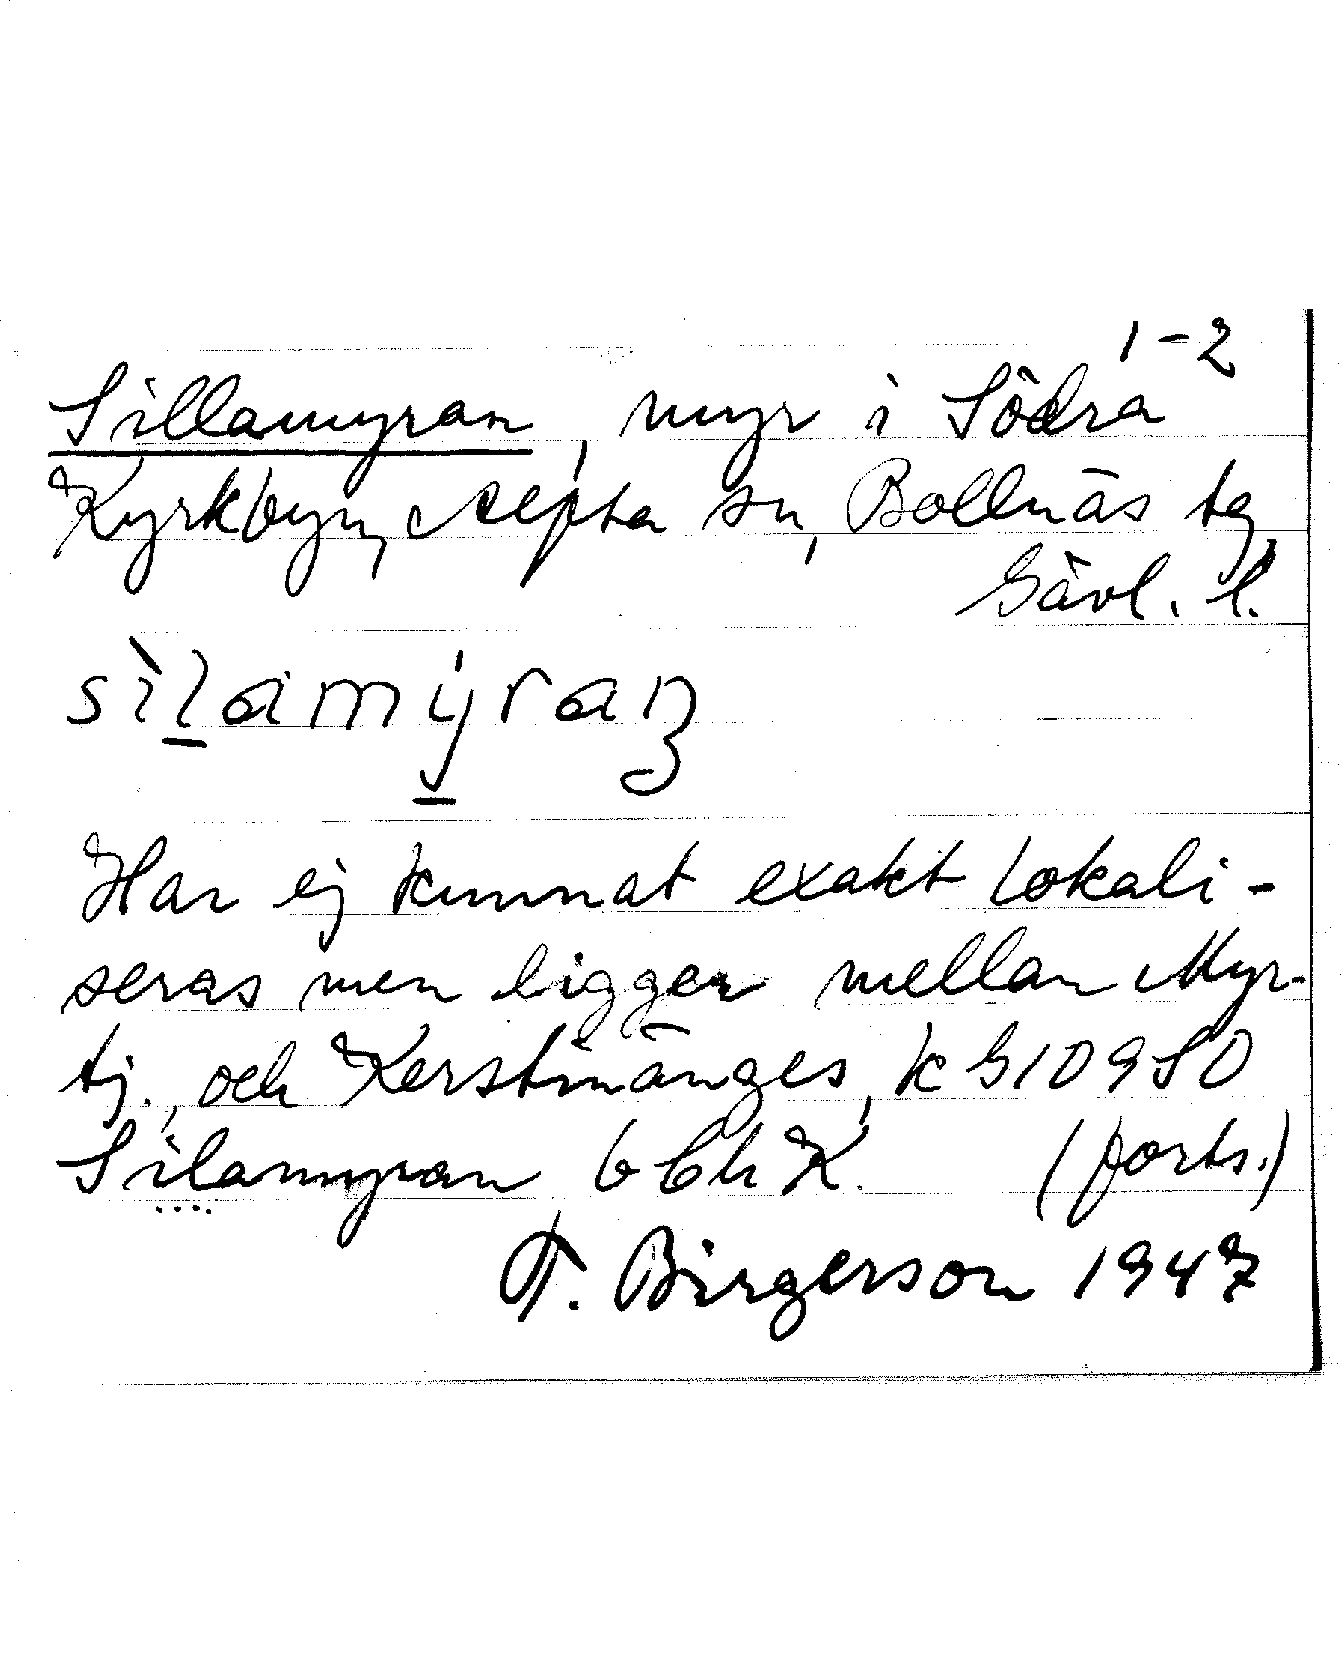 1-2
Sillamyran, myr i Södra
Kyrkbyn, Alfta sn, Bollnäs tg
Gävl. l.
sìlamýraꞃ
Har ej kunnat exakt lokali-
seras men ligger mellan Myr-
tj., och Kerstinänges, k G10950
Silamyran b Ch K. (forts.)
T. Birgerson 1947